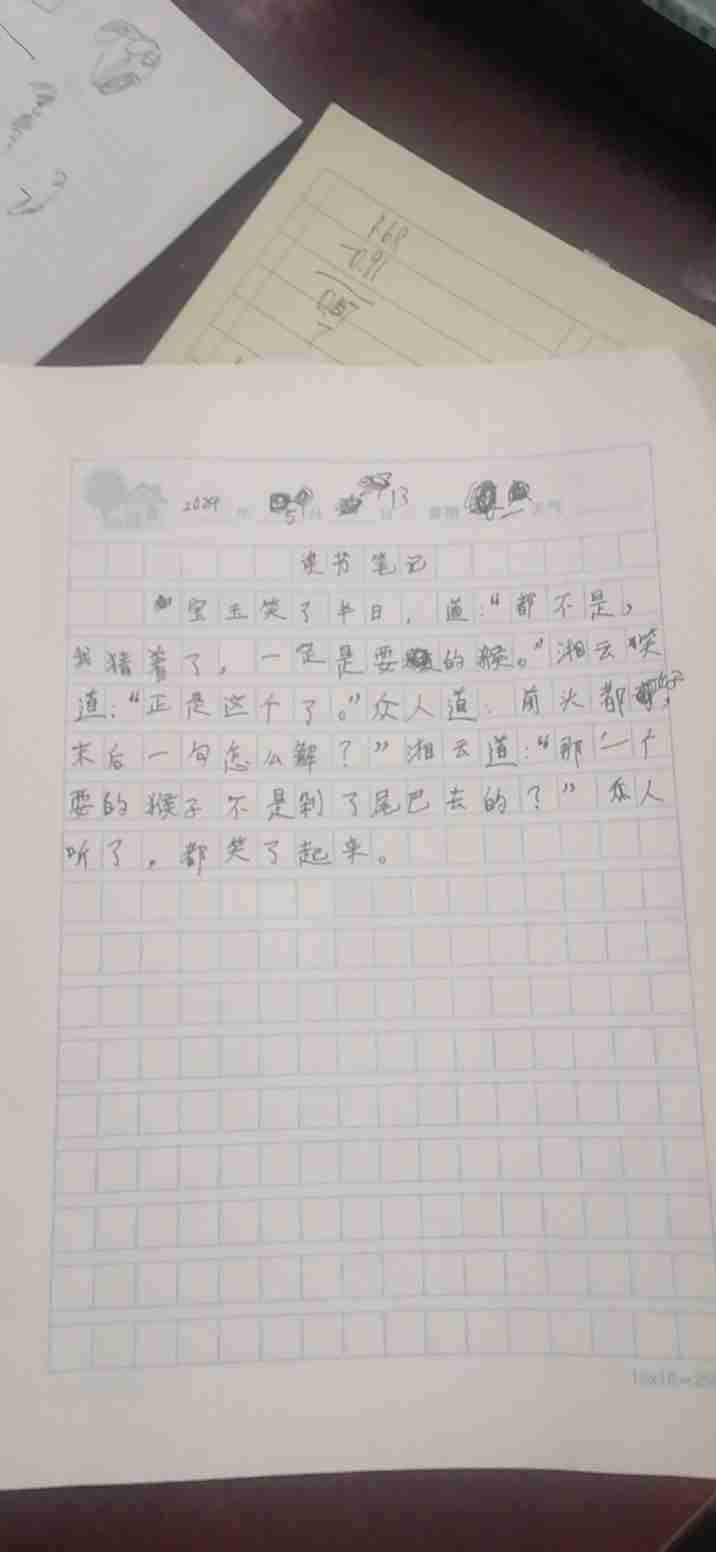 0.91
2024 年 5 月 13 日 星期 天气
读书笔记
宝玉笑了半日，道：“都不是，
我猜着了，一定是耍的猴。”湘云笑
道：“正是这个了。”众人道：前头都
末后一句怎么解？”湘云道：“那一个
耍的猴子不是剁了尾巴去的？”众人
听了，都笑了起来。